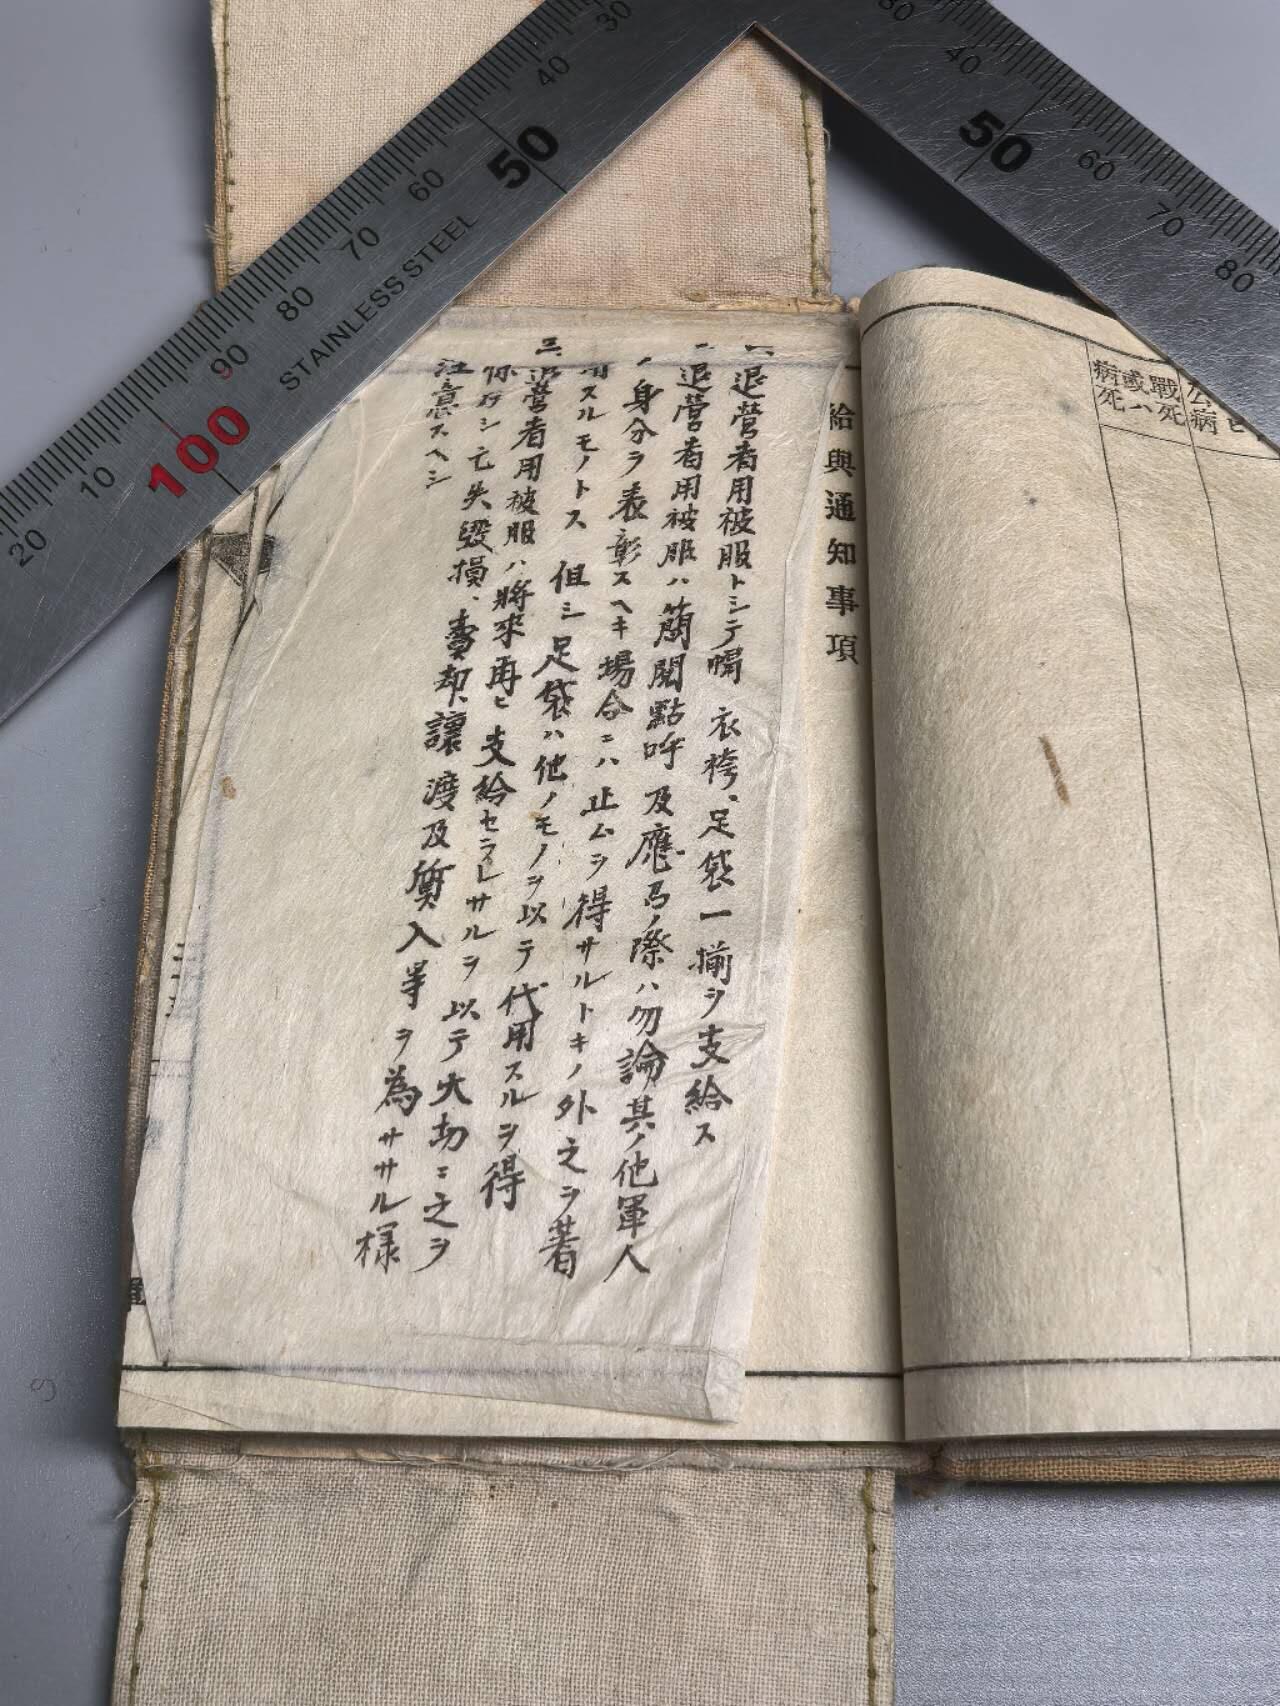 病死
或ハ
戰死
公病
給與通知事項
一、退營者用被服トシテ帽 衣袴、足袋一揃ヲ支給ス
二、退營者用被服ハ簡閲點呼及應召ノ際ハ勿論其ノ他軍人
ノ身分ヲ表彰スヘキ場合ニハ止ムヲ得サルトキノ外之ヲ著
用スルモノトス 但シ足袋ハ他ノモノヲ以テ代用スルヲ得
三、退營者用被服ハ將來再ヒ支給セラレサルヲ以テ大切ニ之ヲ
保存シ亡失毀損、賣却、讓渡及質入等ヲ為ササル様
注意スヘシ
30
40
50
60
70
80
90
100
10
20
STAINLESS STEEL
30
40
50
60
70
80